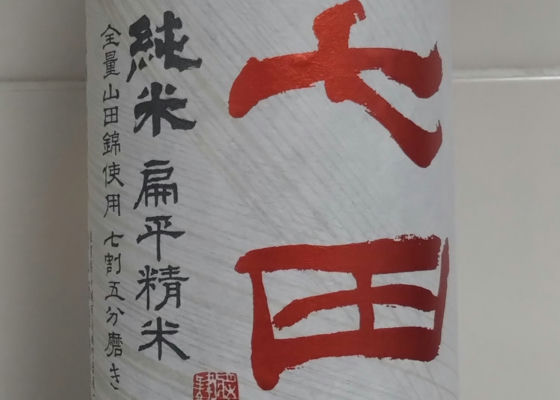 七田
純米 扁平精米
全量山田錦使用 七割五分磨き